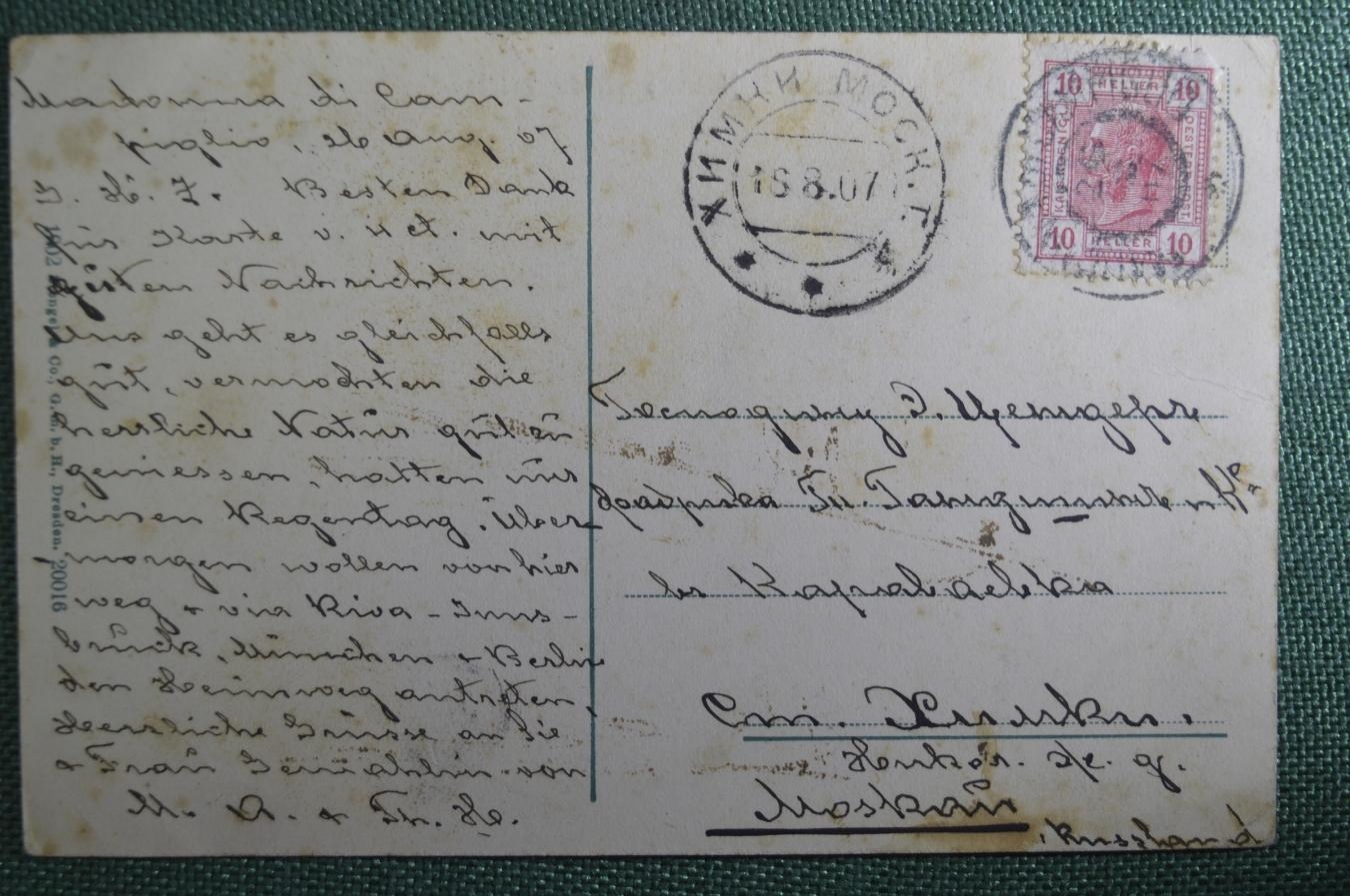 Madonna di Cam-
piglio, 26 Aug. 07
S. H. Z. Besten Dank
für Karte v. 4 ct. mit
guten Nachrichten.
Uns geht es gleichfalls
gut, vermochten die
herrliche Natur gut zu
geniessen, hatten nur
einen Regentag. Über
morgen wollen von hier
weg & via Riva - Inns-
bruck, München & Berlin
den Heimweg antreten.
Herzliche Grüsse an Sie
& Frau Gemahlin von
M. A. & Th. H.
1902 Co., G. m. b. H., Dresden. 20016
ХИМКИ МОСК. Г.
18.8.07
10 HELLER 10
10 HELLER 10
Господину Э. Цендеръ
фабрика Гл. и Кº
въ
Ст. Химки.
Ник. ж. д.
Moskau
Russland